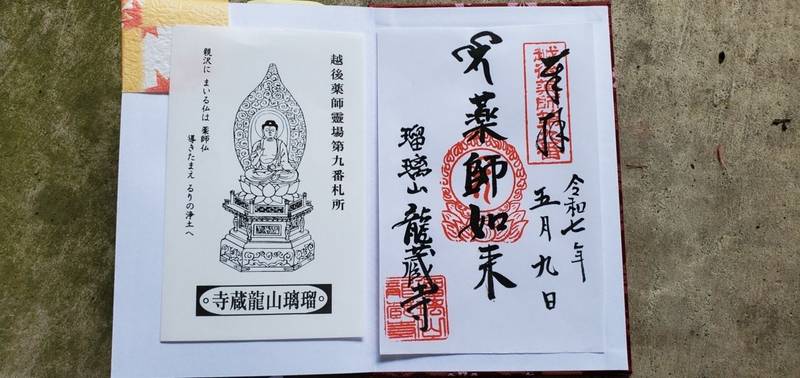 奉拝
令和七年
五月九日
薬師如来
瑠璃山 龍蔵寺
越後薬師靈場第九番札所
親沢に まいる仏は 薬師仏
導きたまえ るりの浄土へ
瑠璃山龍蔵寺